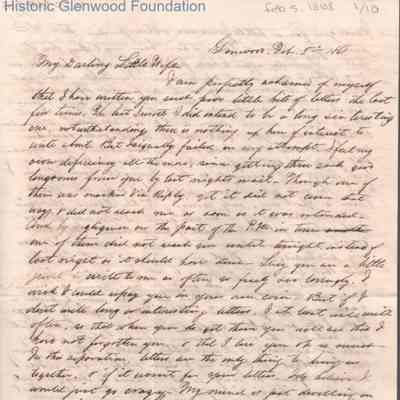 Historic Glenwood Foundation
Feb 5, 1/10
Feb. 5th
My Darling Little Wife,
I am perfectly ashamed of myself
that I have written you such poor little bits of letters the last
few times. The last I wrote I did intend to be a long interesting
one, notwithstanding there is nothing up here of interest to
write about but I signally failed in my attempt. I feel my
own deficiency all the more, since getting three such
long ones from you by last nights mail. Though one of
them was marked Via Rigby yet it did not come that
way, & did not reach me as soon as it was intended.
And by negligence on the part of the P.M. in town
one of them did not reach me until tonight instead of
last night as it should have done. Sure you are a little
jewel to write to me so often, so freely and lovingly. I
wish I could repay you in your own coin. But if I
don't write long or interesting letters, I at least will write
often, so that when you do get them you will see that I
have not forgotten you, & that I love you oh so much.
In this separation letters are the only thing to bring us
together, & if it wasn't for your letters I believe I
would just go crazy. My mind is just dwelling on